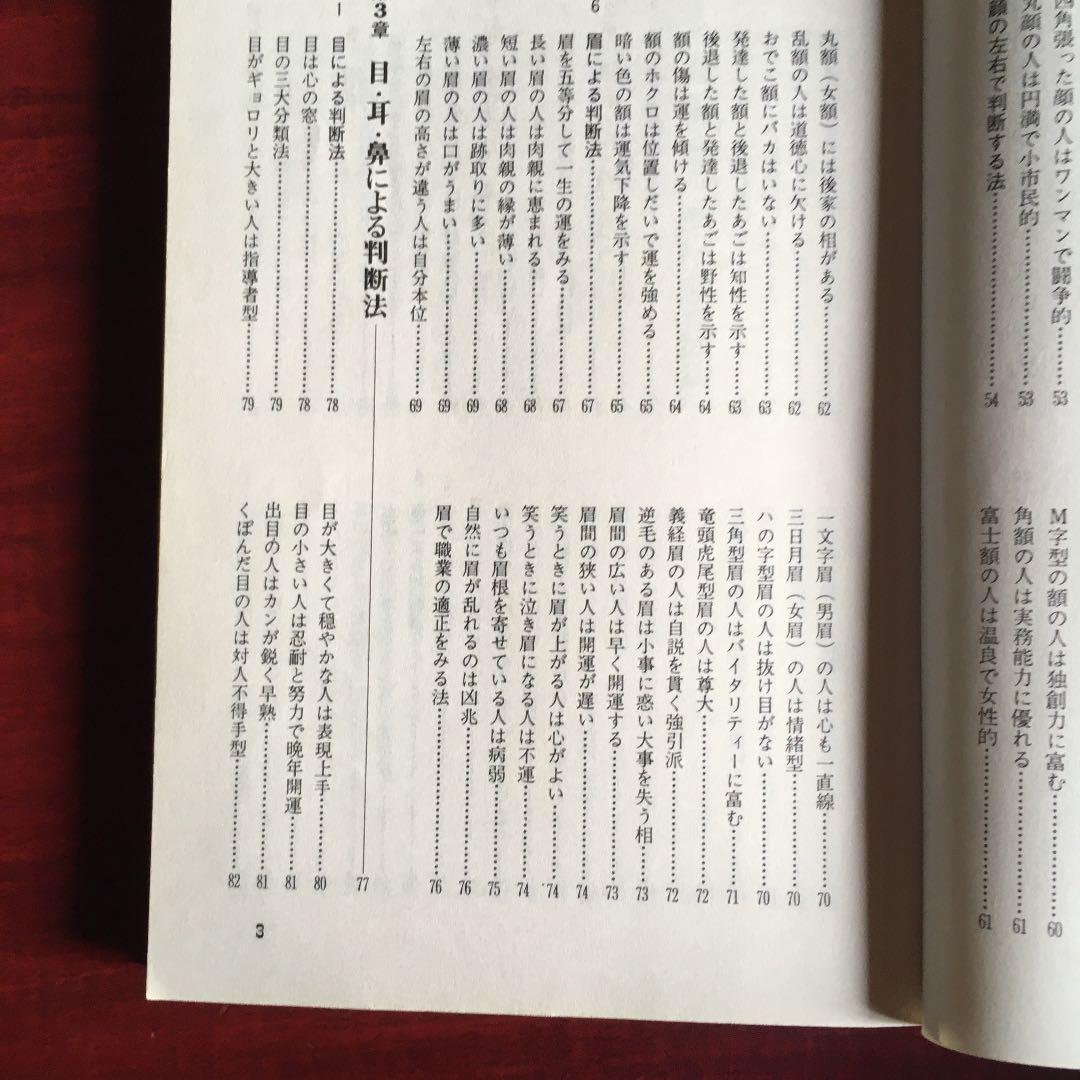 四角張った顔の人はワンマンで闘争的……53
丸顔の人は円満で小市民的……53
顔の左右で判断する法……54
M字型の額の人は独創力に富む……60
角額の人は実務能力に優れる……61
富士額の人は温良で女性的……61
丸額（女額）には後家の相がある……62
乱額の人は道徳心に欠ける……62
おでこ額にバカはいない……63
発達した額と後退したあごは知性を示す……63
後退した額と発達したあごは野性を示す……64
額の傷は運を傾ける……64
額のホクロは位置しだいで運を強める……65
暗い色の額は運気下降を示す……65
6
眉による判断法……67
眉を五等分して一生の運をみる……67
長い眉の人は肉親に恵まれる……68
短い眉の人は肉親の縁が薄い……68
濃い眉の人は跡取りに多い……69
薄い眉の人は口がうまい……69
左右の眉の高さが違う人は自分本位……69
一文字眉（男眉）の人は心も一直線……70
三日月眉（女眉）の人は情緒型……70
ハの字型眉の人は抜け目がない……70
三角型眉の人はバイタリティーに富む……71
竜頭虎尾型眉の人は尊大……72
義経眉の人は自説を貫く強引派……72
逆毛のある眉は小事に惑い大事を失う相……73
眉間の広い人は早く開運する……73
眉間の狭い人は開運が遅い……74
笑うときに眉が上がる人は心がよい……74
笑うときに泣き眉になる人は不運……74
いつも眉根を寄せている人は病弱……75
自然に眉が乱れるのは凶兆……76
眉で職業の適正をみる法……76
3章 目・耳・鼻による判断法 77
目による判断法……78
目は心の窓……78
目の三大分類法……79
目がギョロリと大きい人は指導者型……79
目が大きくて穏やかな人は表現上手……80
目の小さい人は忍耐と努力で晩年開運……81
出目の人はカンが鋭く早熟……81
くぼんだ目の人は対人不得手型……82
3